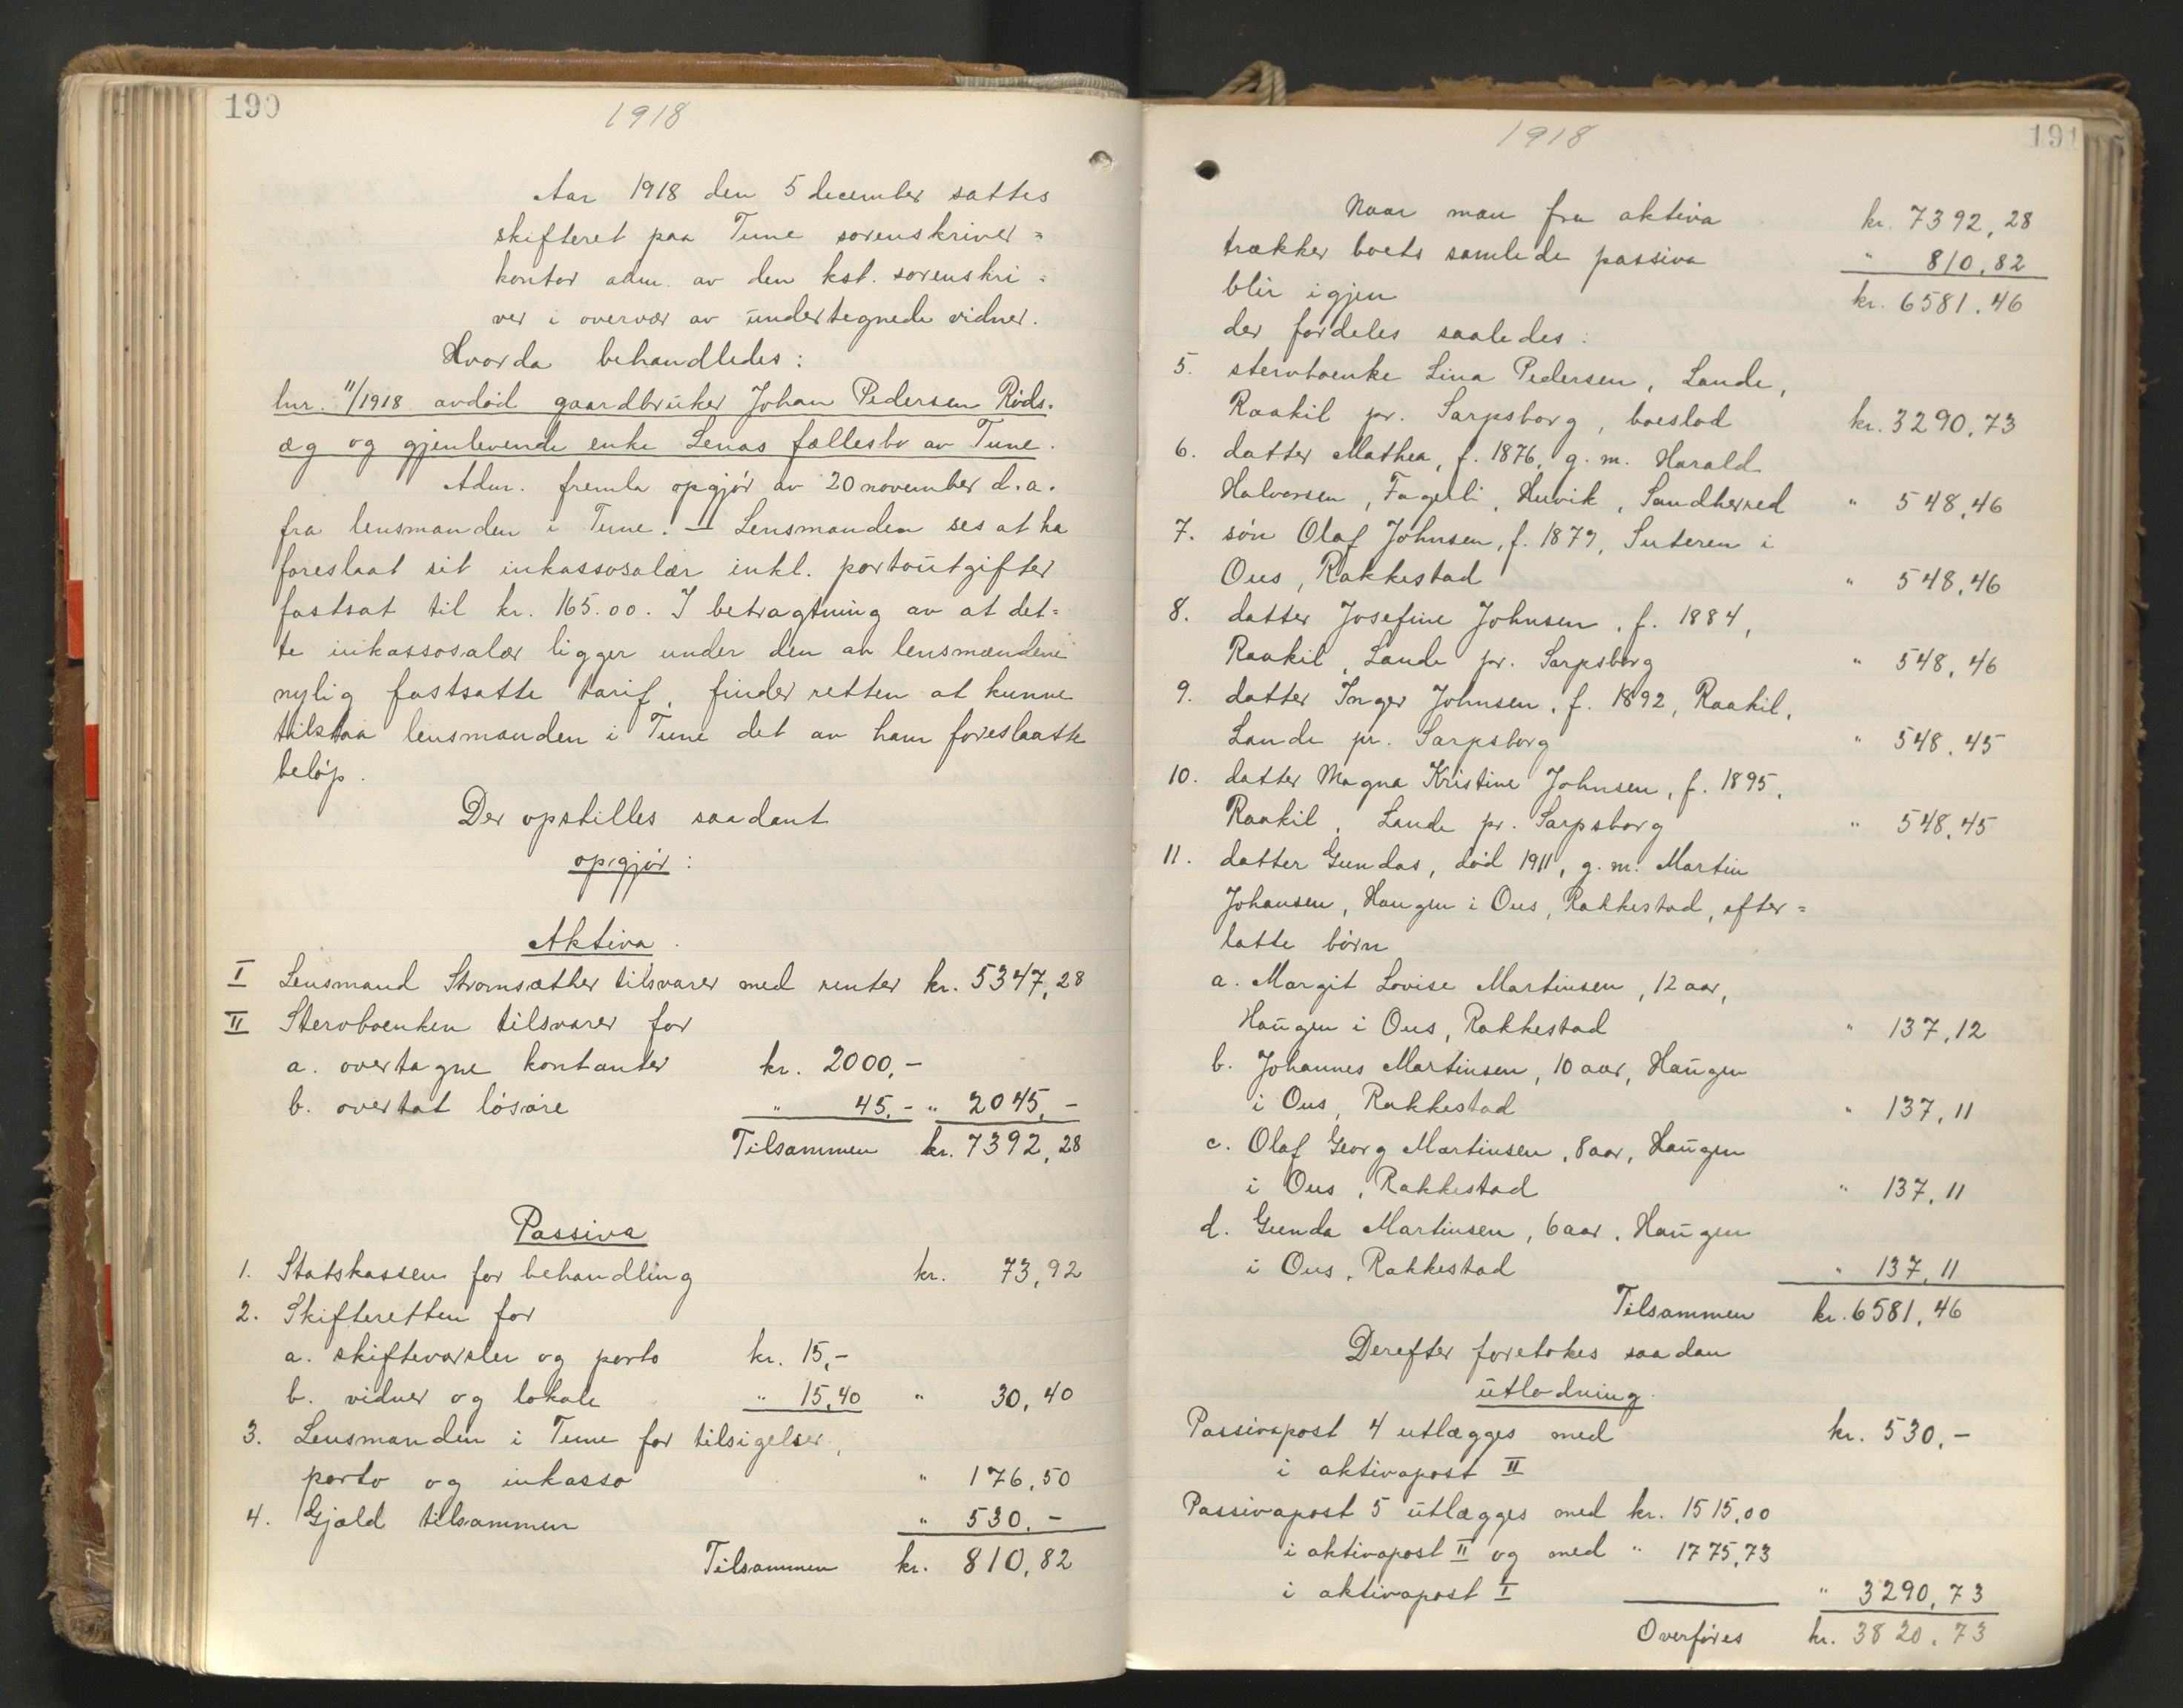 190
1918
Aar 1918 den 5 december sattes
skifteret paa Tune sorenskriver=
kontor adm. av den kst. sorenskri=
ver i overvær av undertegnede vidner.
Hvorda behandledes:
lnr. 11/1918 avdød gaardbruker Johan Pedersen Røds-
æg og gjenlevende enke Lenas fællesbo av Tune.
Adm. fremla opgjør av 20 november d.a.
fra lensmanden i Tune. — Lensmanden ses at ha
foreslaat sit inkassosalær inkl. portoutgifter
fastsat til kr. 165.00. I betragtning av at det=
te inkassosalær ligger under den av lensmændene
nylig fastsatte tarif, finder retten at kunne
tilstaa lensmanden i Tune det av ham foreslaatte
beløp.
Der opstilles saadant
opgjør:
Aktiva.
I Lensmand Strømsæther tilsvarer med renter kr. 5347,28
II Stervboenken tilsvarer for
a. overtagne kontanter kr. 2000,-
b. overtat løsøre " 45,- " 2045,-
Tilsammen kr. 7392,28
Passiva
1. Statskassen for behandling kr. 73,92
2. Skifteretten for
a. skiftevarsler og porto kr. 15,-
b. vidner og lokale " 15,40 " 30,40
3. Lensmanden i Tune for tilsigelser,
porto og inkasso " 176,50
4. Gjæld tilsammen " 530,-
Tilsammen kr. 810,82
191
1918
Naar man fra aktiva kr. 7392,28
trækker boets samlede passiva " 810,82
blir igjen kr. 6581,46
der fordeles saaledes:
5. stervboenke Lina Pedersen, Lande,
Raakil pr. Sarpsborg, boeslod kr. 3290,73
6. datter Mathea, f. 1876, g.m. Harald
Halvorsen, Fagerli, Huvik, Sandherred " 548,46
7. søn Olaf Johnsen, f. 1879, Suteren i
Ous, Rakkestad " 548,46
8. datter Josefine Johnsen, f. 1884,
Raakil, Lande pr. Sarpsborg " 548,46
9. datter Inger Johnsen, f. 1892, Raakil,
Lande pr. Sarpsborg " 548,45
10. datter Magna Kristine Johnsen, f. 1895,
Raakil, Lande pr. Sarpsborg " 548,45
11. datter Gundas, død 1911, g.m. Martin
Johansen, Haugen i Ous, Rakkestad, efter=
latte børn
a. Margit Lovise Martinsen, 12 aar,
Haugen i Ous, Rakkestad " 137,12
b. Johannes Martinsen, 10 aar, Haugen
i Ous, Rakkestad " 137,11
c. Olaf Georg Martinsen, 8 aar, Haugen
i Ous, Rakkestad " 137,11
d. Gunda Martinsen, 6 aar, Haugen
i Ous, Rakkestad " 137,11
Tilsammen kr. 6581,46
Derefter foretokes saadan
utlodning.
Passivapost 4 utlægges med kr. 530,-
i aktivapost II
Passivapost 5 utlægges med kr. 1515,00
i aktivapost II og med " 1775,73
i aktivapost I " 3290,73
Overføres kr. 3820,73